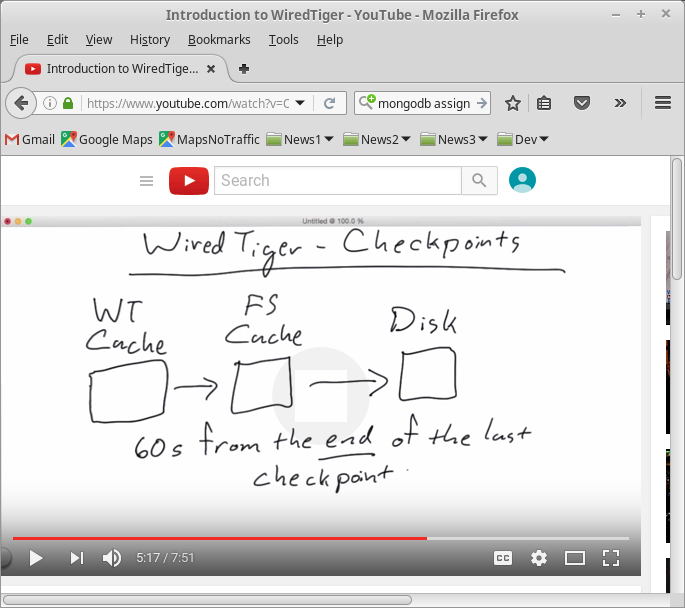 Introduction to WiredTiger - YouTube - Mozilla Firefox
File Edit View History Bookmarks Tools Help
Introduction to WiredTige...
https://www.youtube.com/watch?v=C mongodb assign
Gmail Google Maps MapsNoTraffic News1 News2 News3 Dev
Search
Untitled @ 100.0 %
Wired Tiger - Checkpoints
WT FS Disk
Cache Cache
60s from the end of the last
checkpoint
5:17 / 7:51 CC